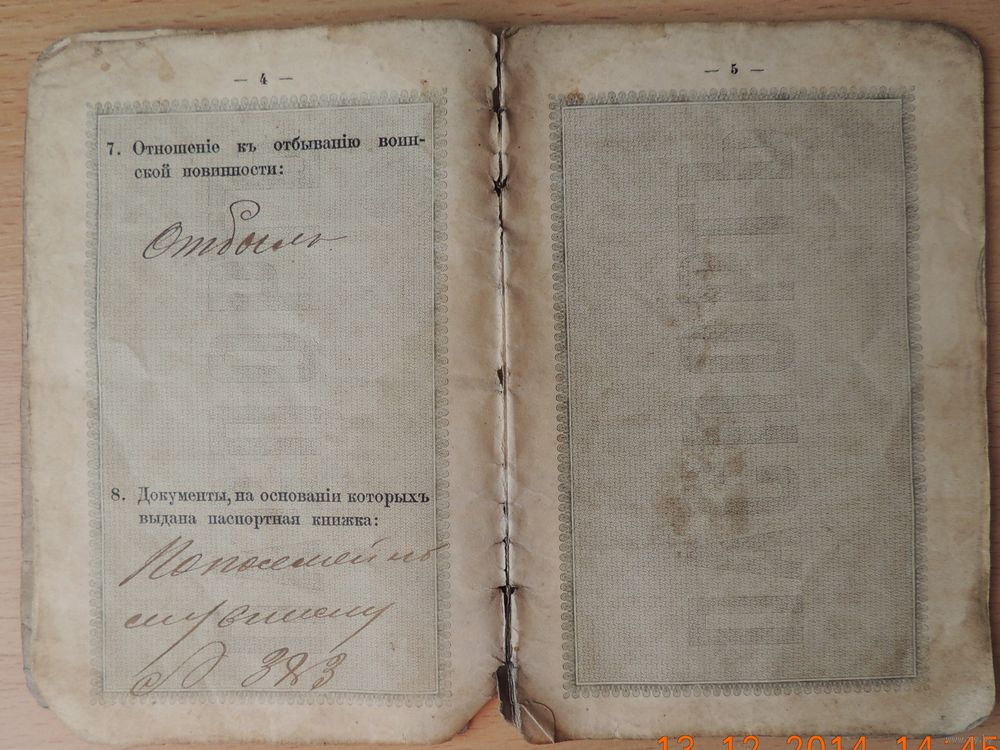 — 4 —
7. Отношеніе къ отбыванію воин-
ской повинности:
Отбылъ
8. Документы, на основаніи которыхъ
выдана паспортная книжка:
По посемейно
му списку
№ 383
— 5 —
13 12 2014 14:45